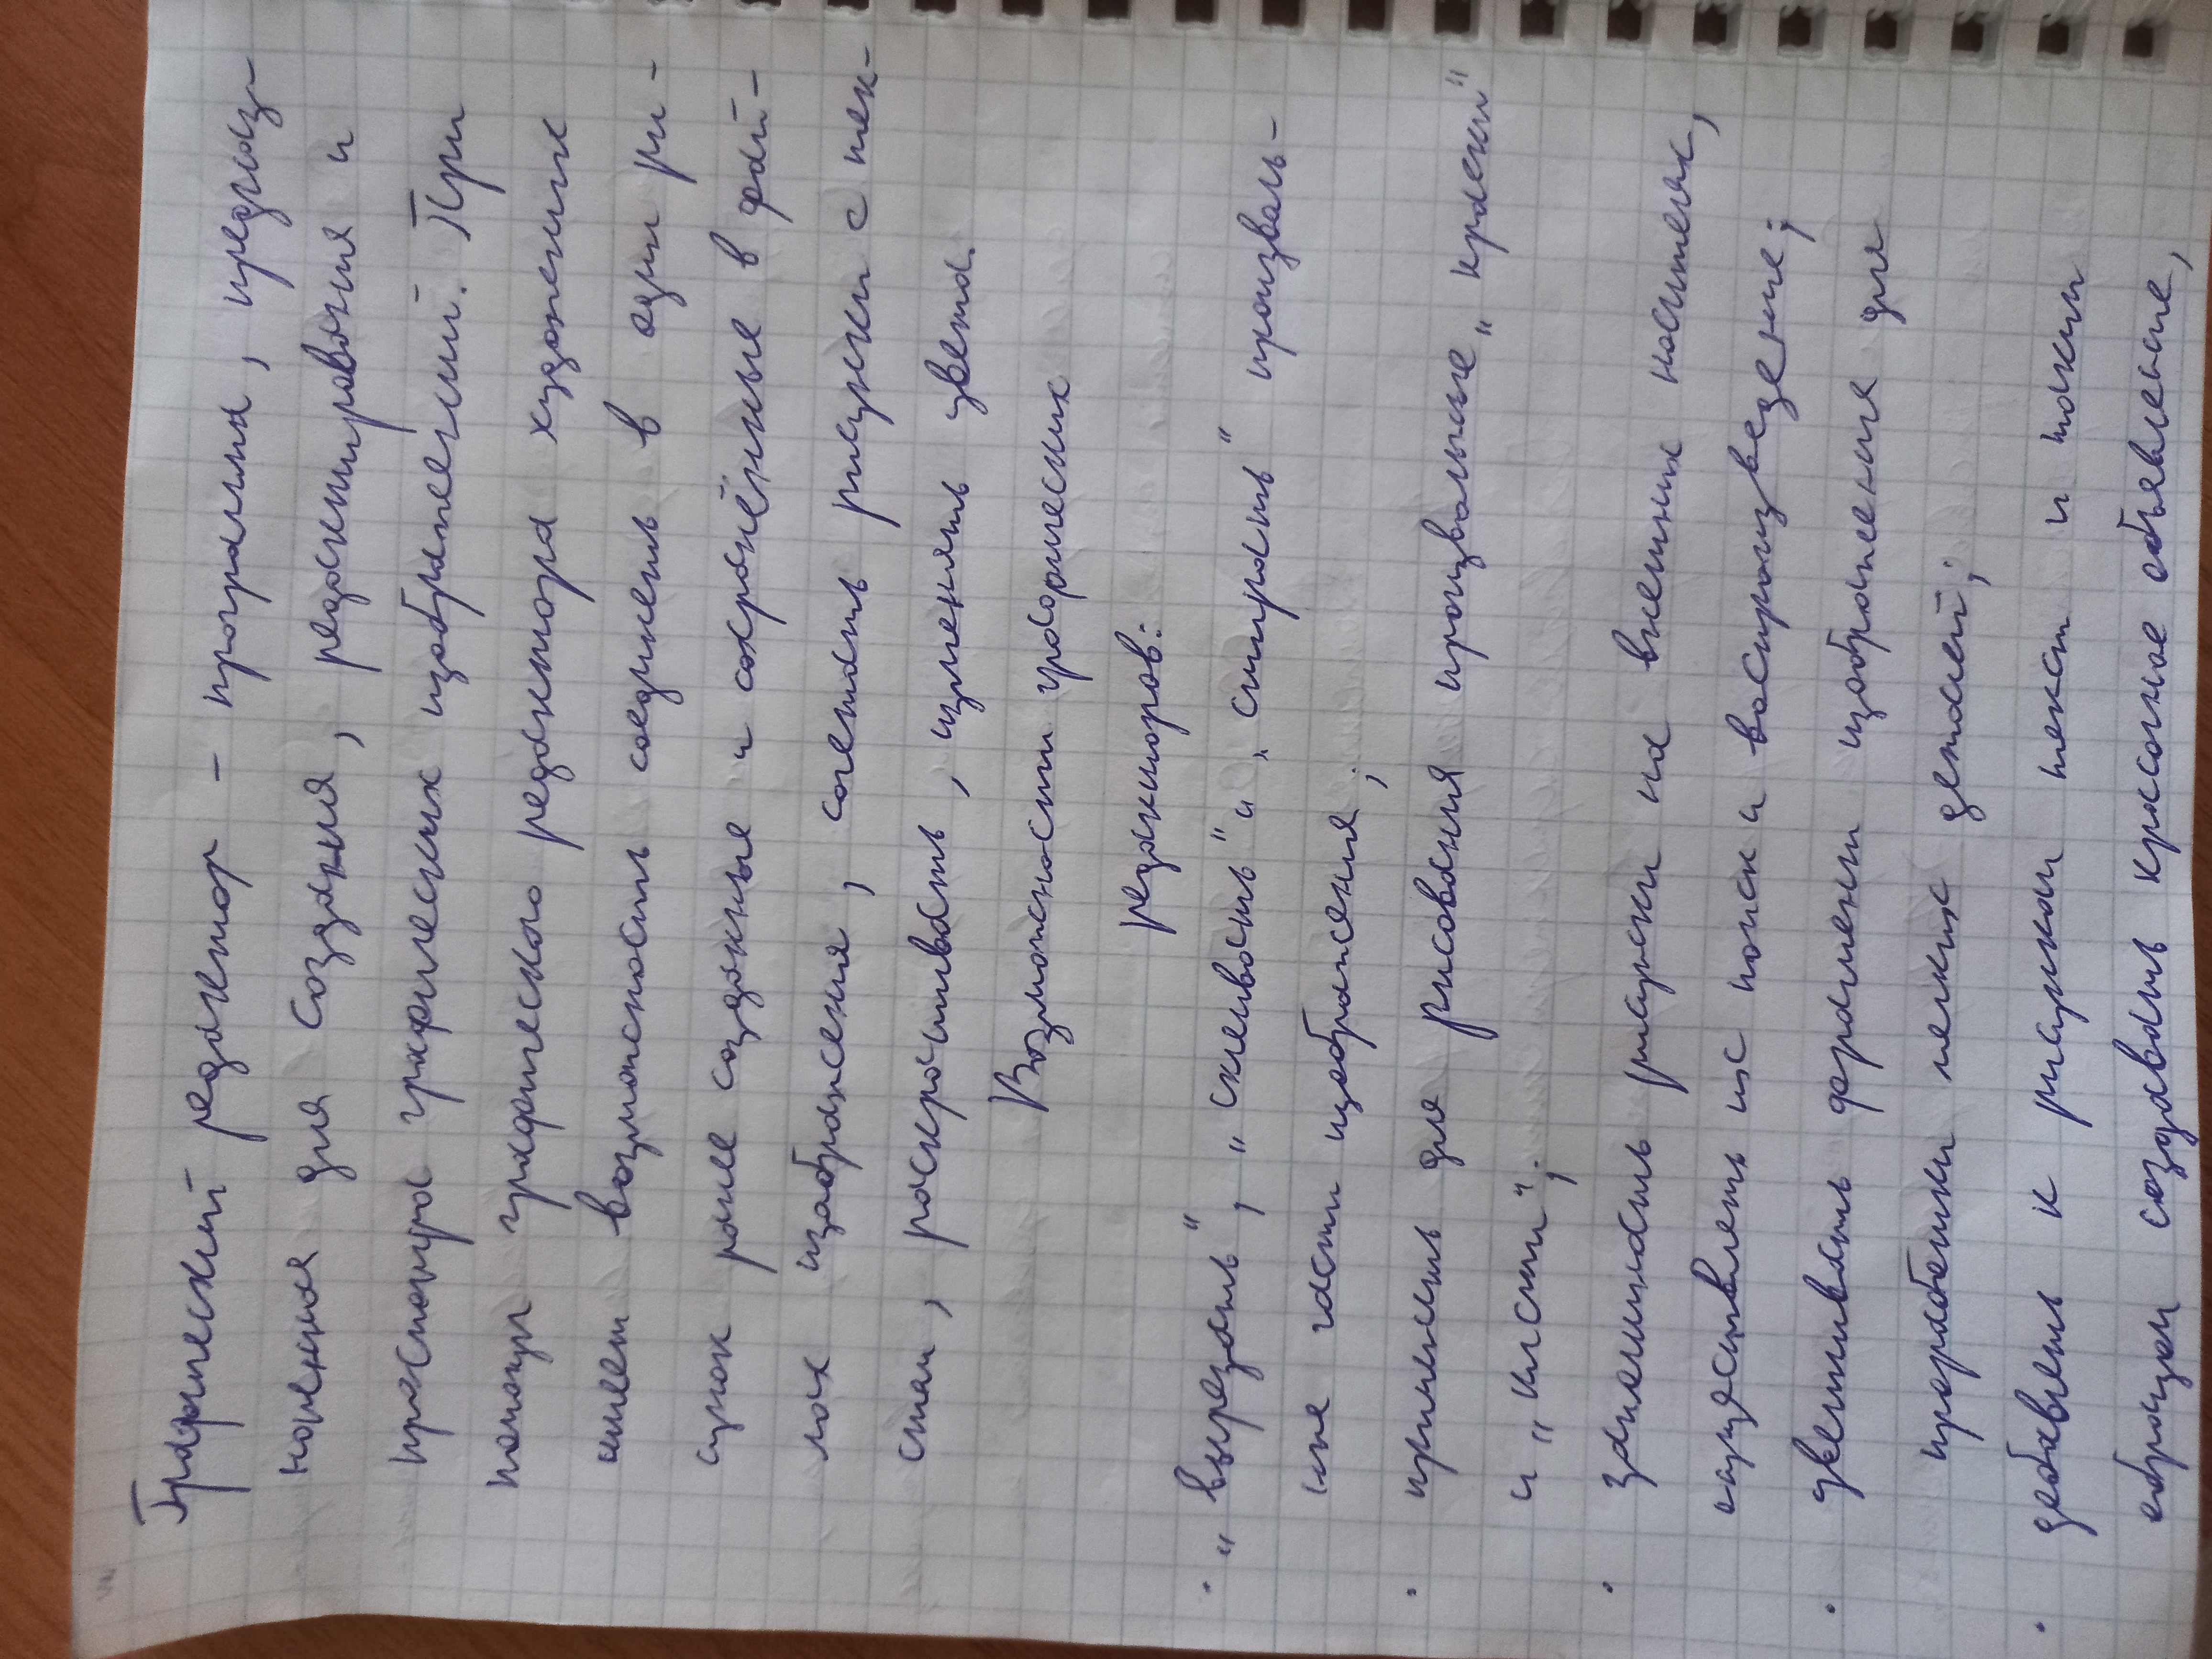 Графический редактор – программа, предназ-
наченная для создания, редактирования и
просмотра графических изображений. При
помощи графического редактора художник
имеет возможность соединить в один ри-
сунок ранее созданные и сохранённые в фай-
лах изображения, сочетать рисунки с тек-
стам, раскрашивать, изменять цвета.
Возможности графических
редакторов:
• „вырезать", „склеивать" и „стирать" произволь-
ные части изображения;
• применить для рисования произвольные „краски"
и „кисти";
• запоминать рисунки на внешних носителях,
осуществлять их поиск и воспроизведение;
• увеличивать фрагмент изображения для
проработки мелких деталей;
• добавлять к рисункам текст и таким
образом создавать красочное объявление,